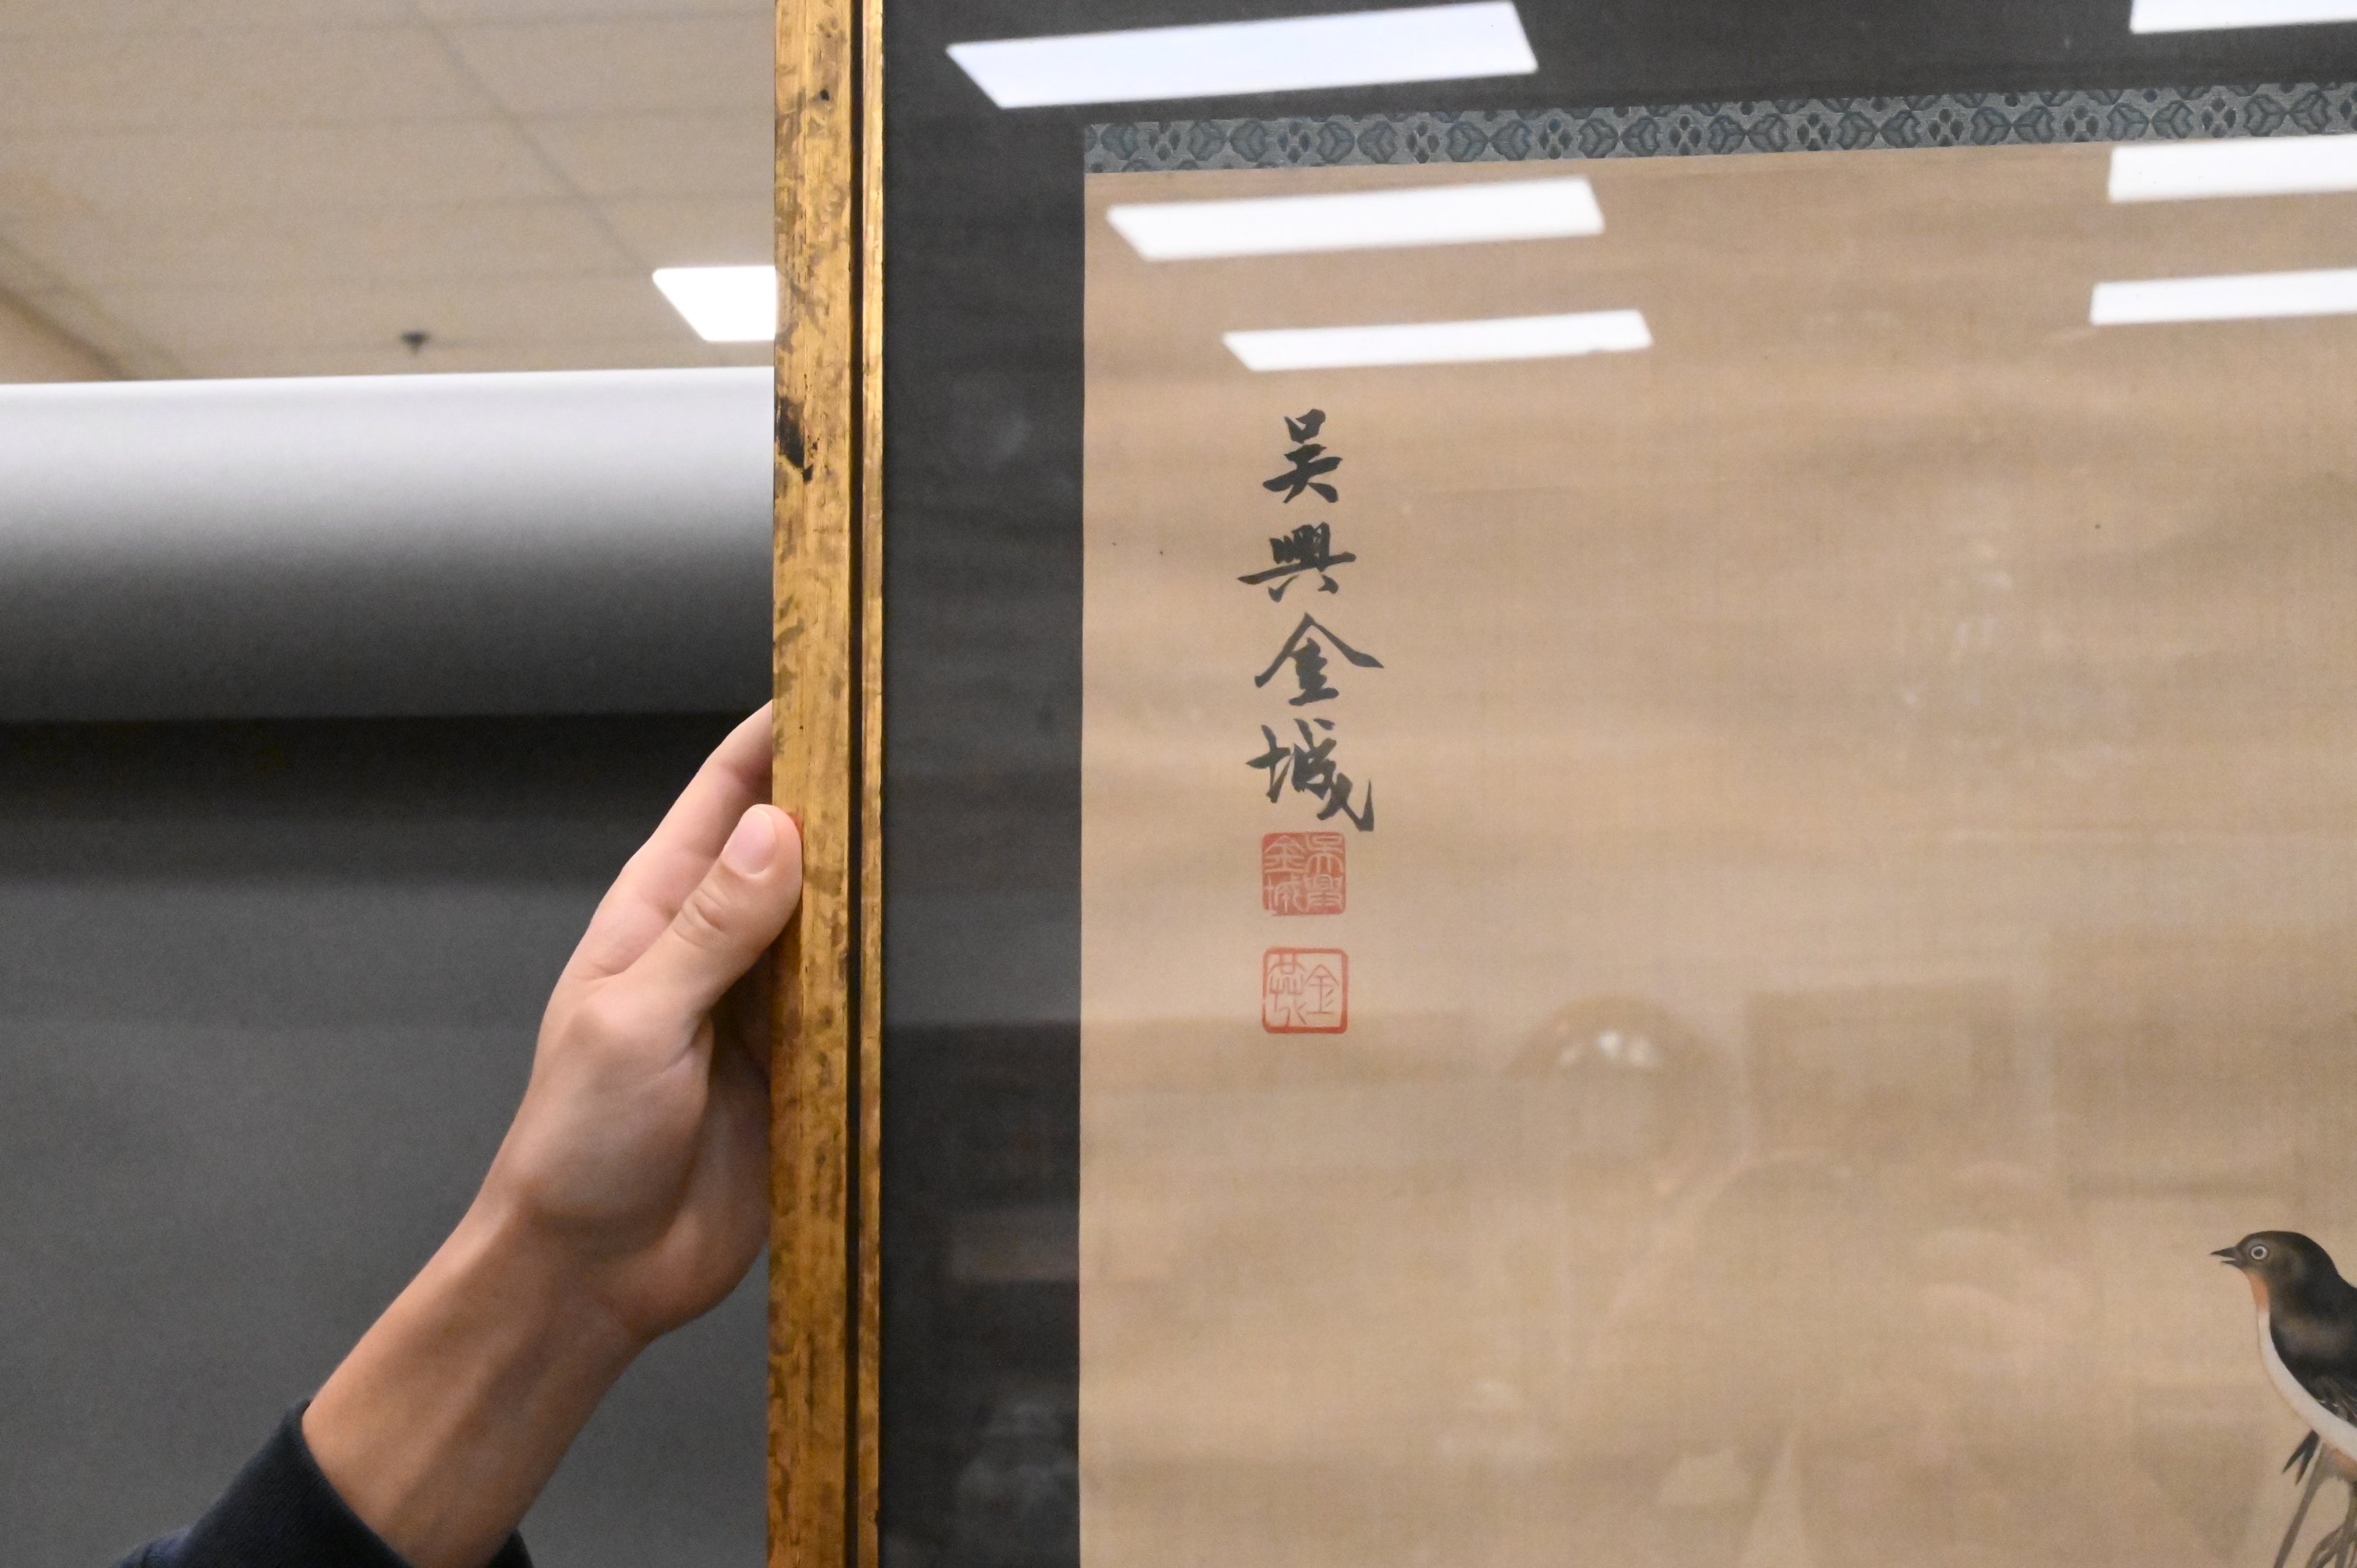 吴興金城
吳興金城
金拱